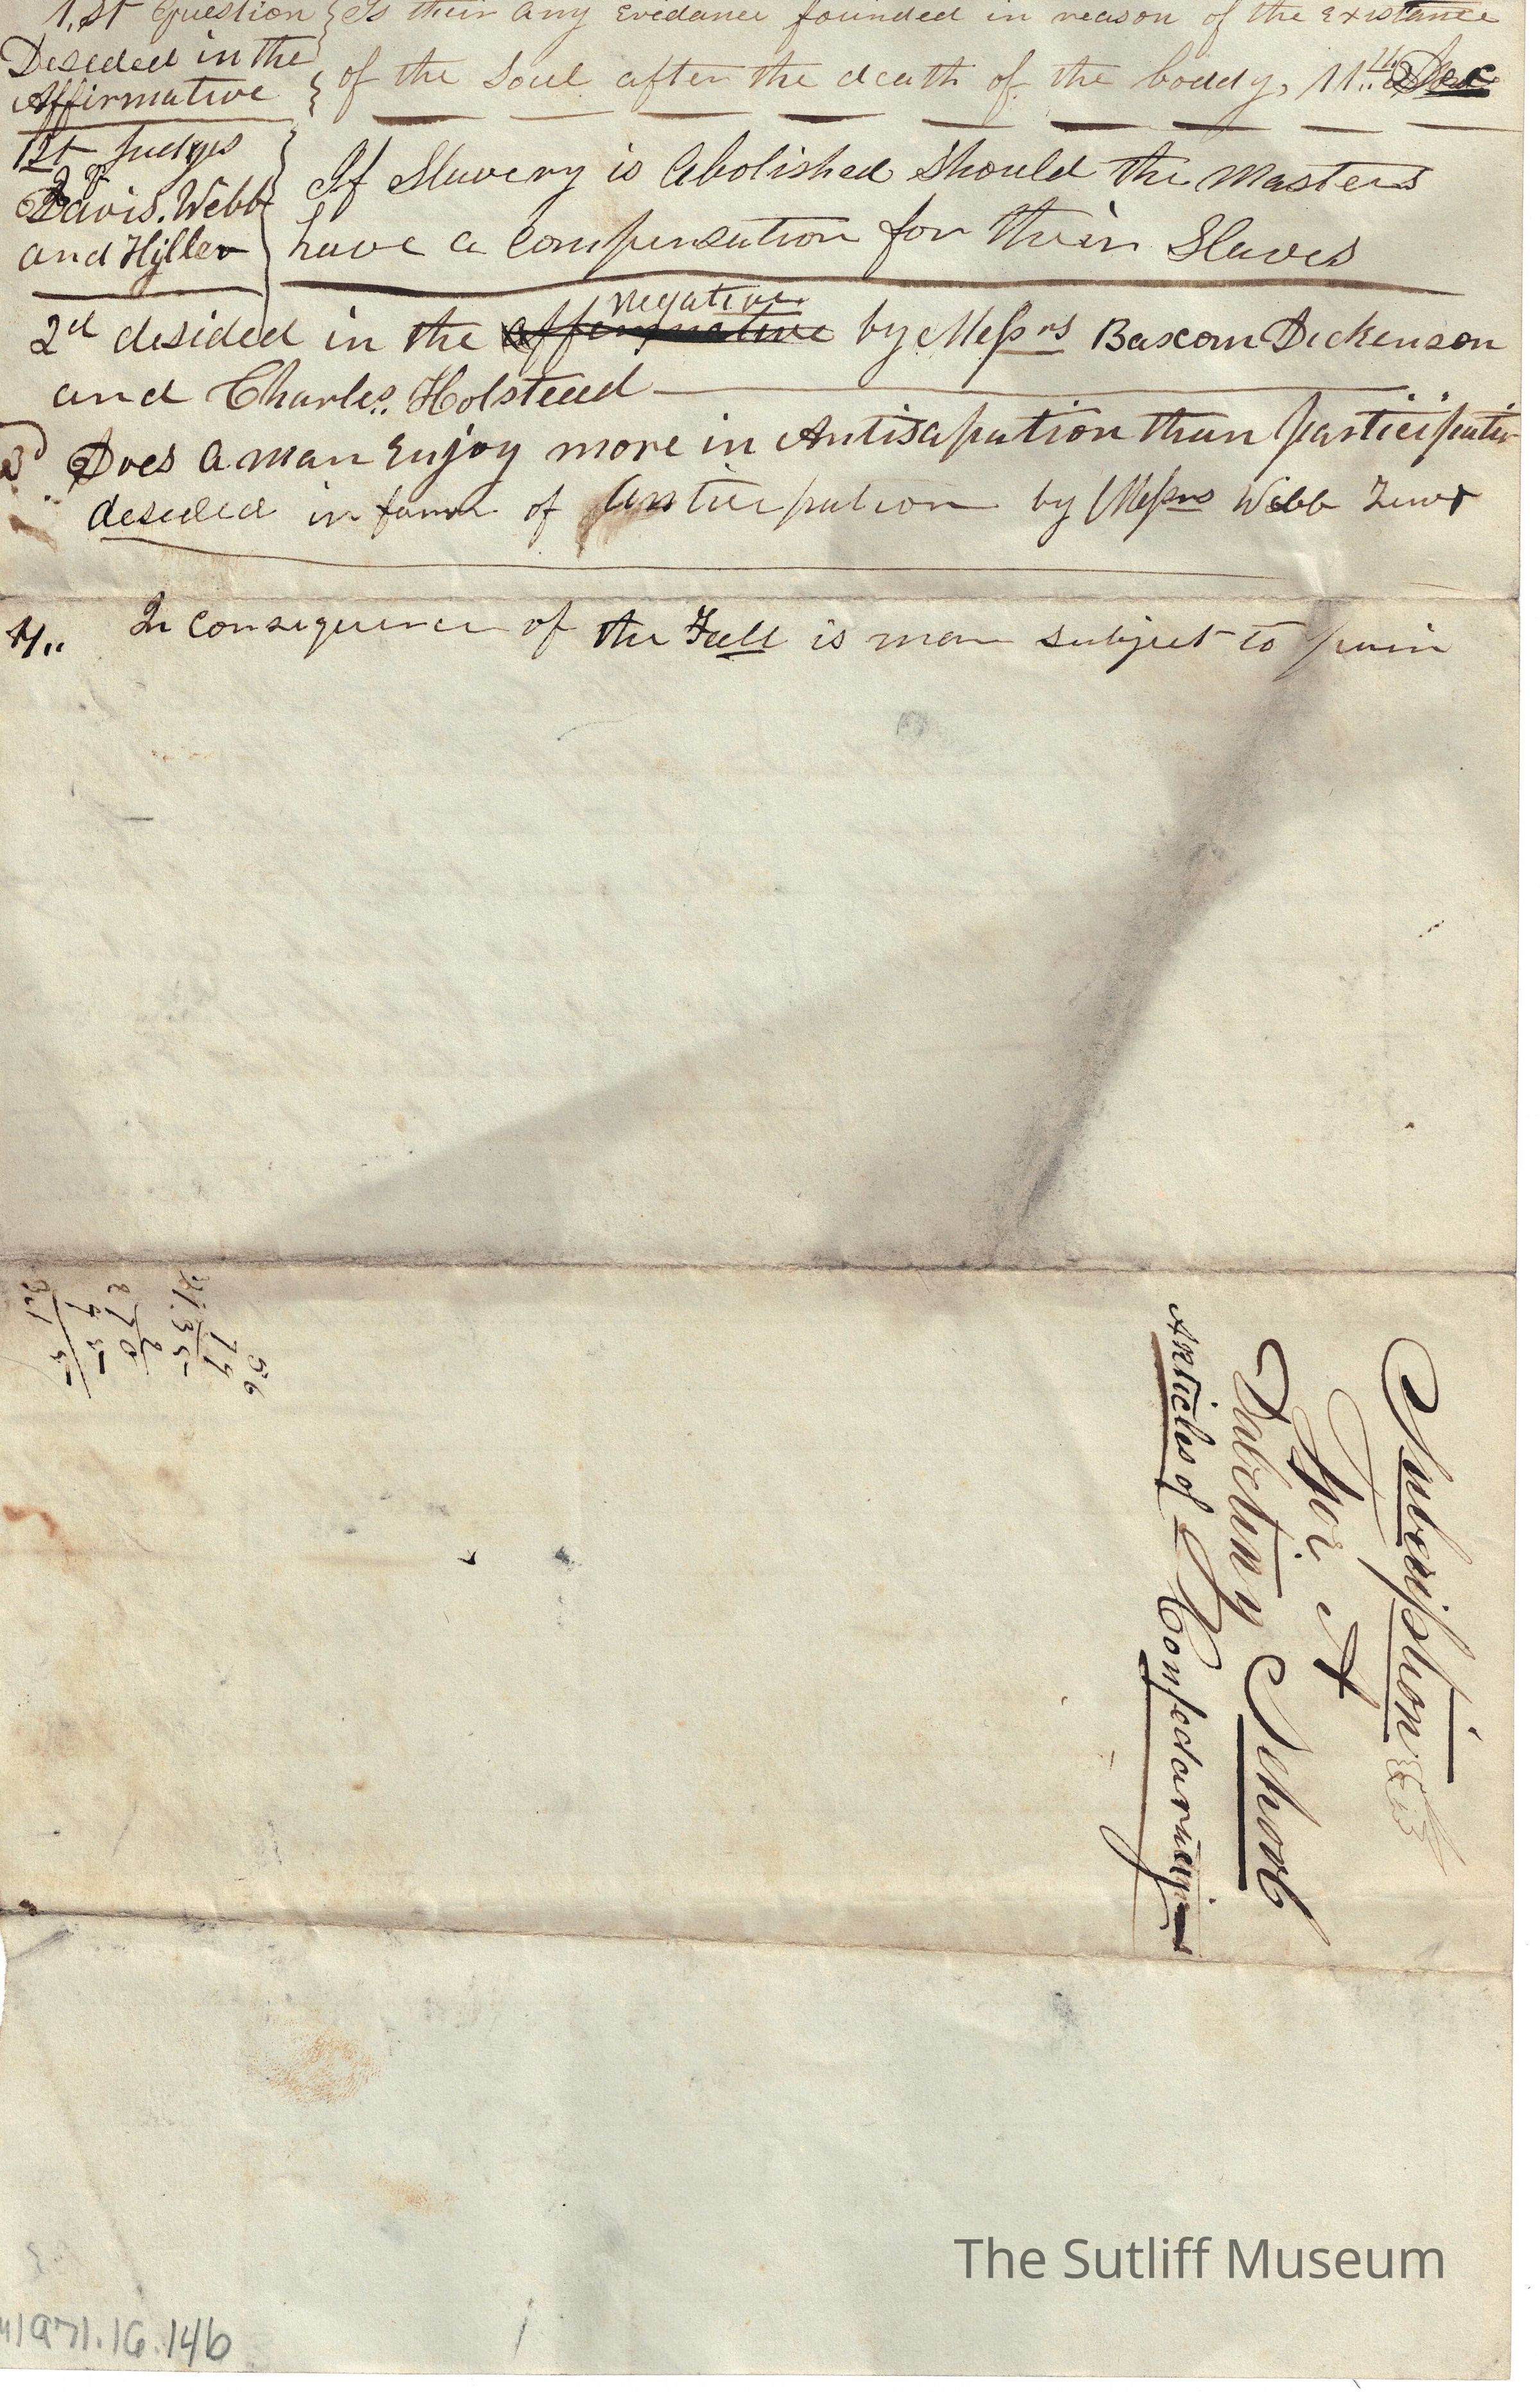 1.st Question { Is their any Evidance founded in reason of the Existance
Desided in the
Affirmative { of the Soul after the death of the boddy, 11th Dec
1st Judges
Davis. Webb
and Hyller
If Slavery is Abolished Should the Masters
have a Compensation for their Slaves
2d desided in the affermative negative by Messrs Bascom Dickenson
and Charles. Holsteed
3d Does a man Enjoy more in Antisapation than participation
desided in favor of Anticipation by Messrs Webb
4.. In consequence of the Fall is man subject to pain
Subscription
For A
Dabeting School
Articles of Confedaration
56
79
4.35
2
870
95
The Sutliff Museum
1971.16.146